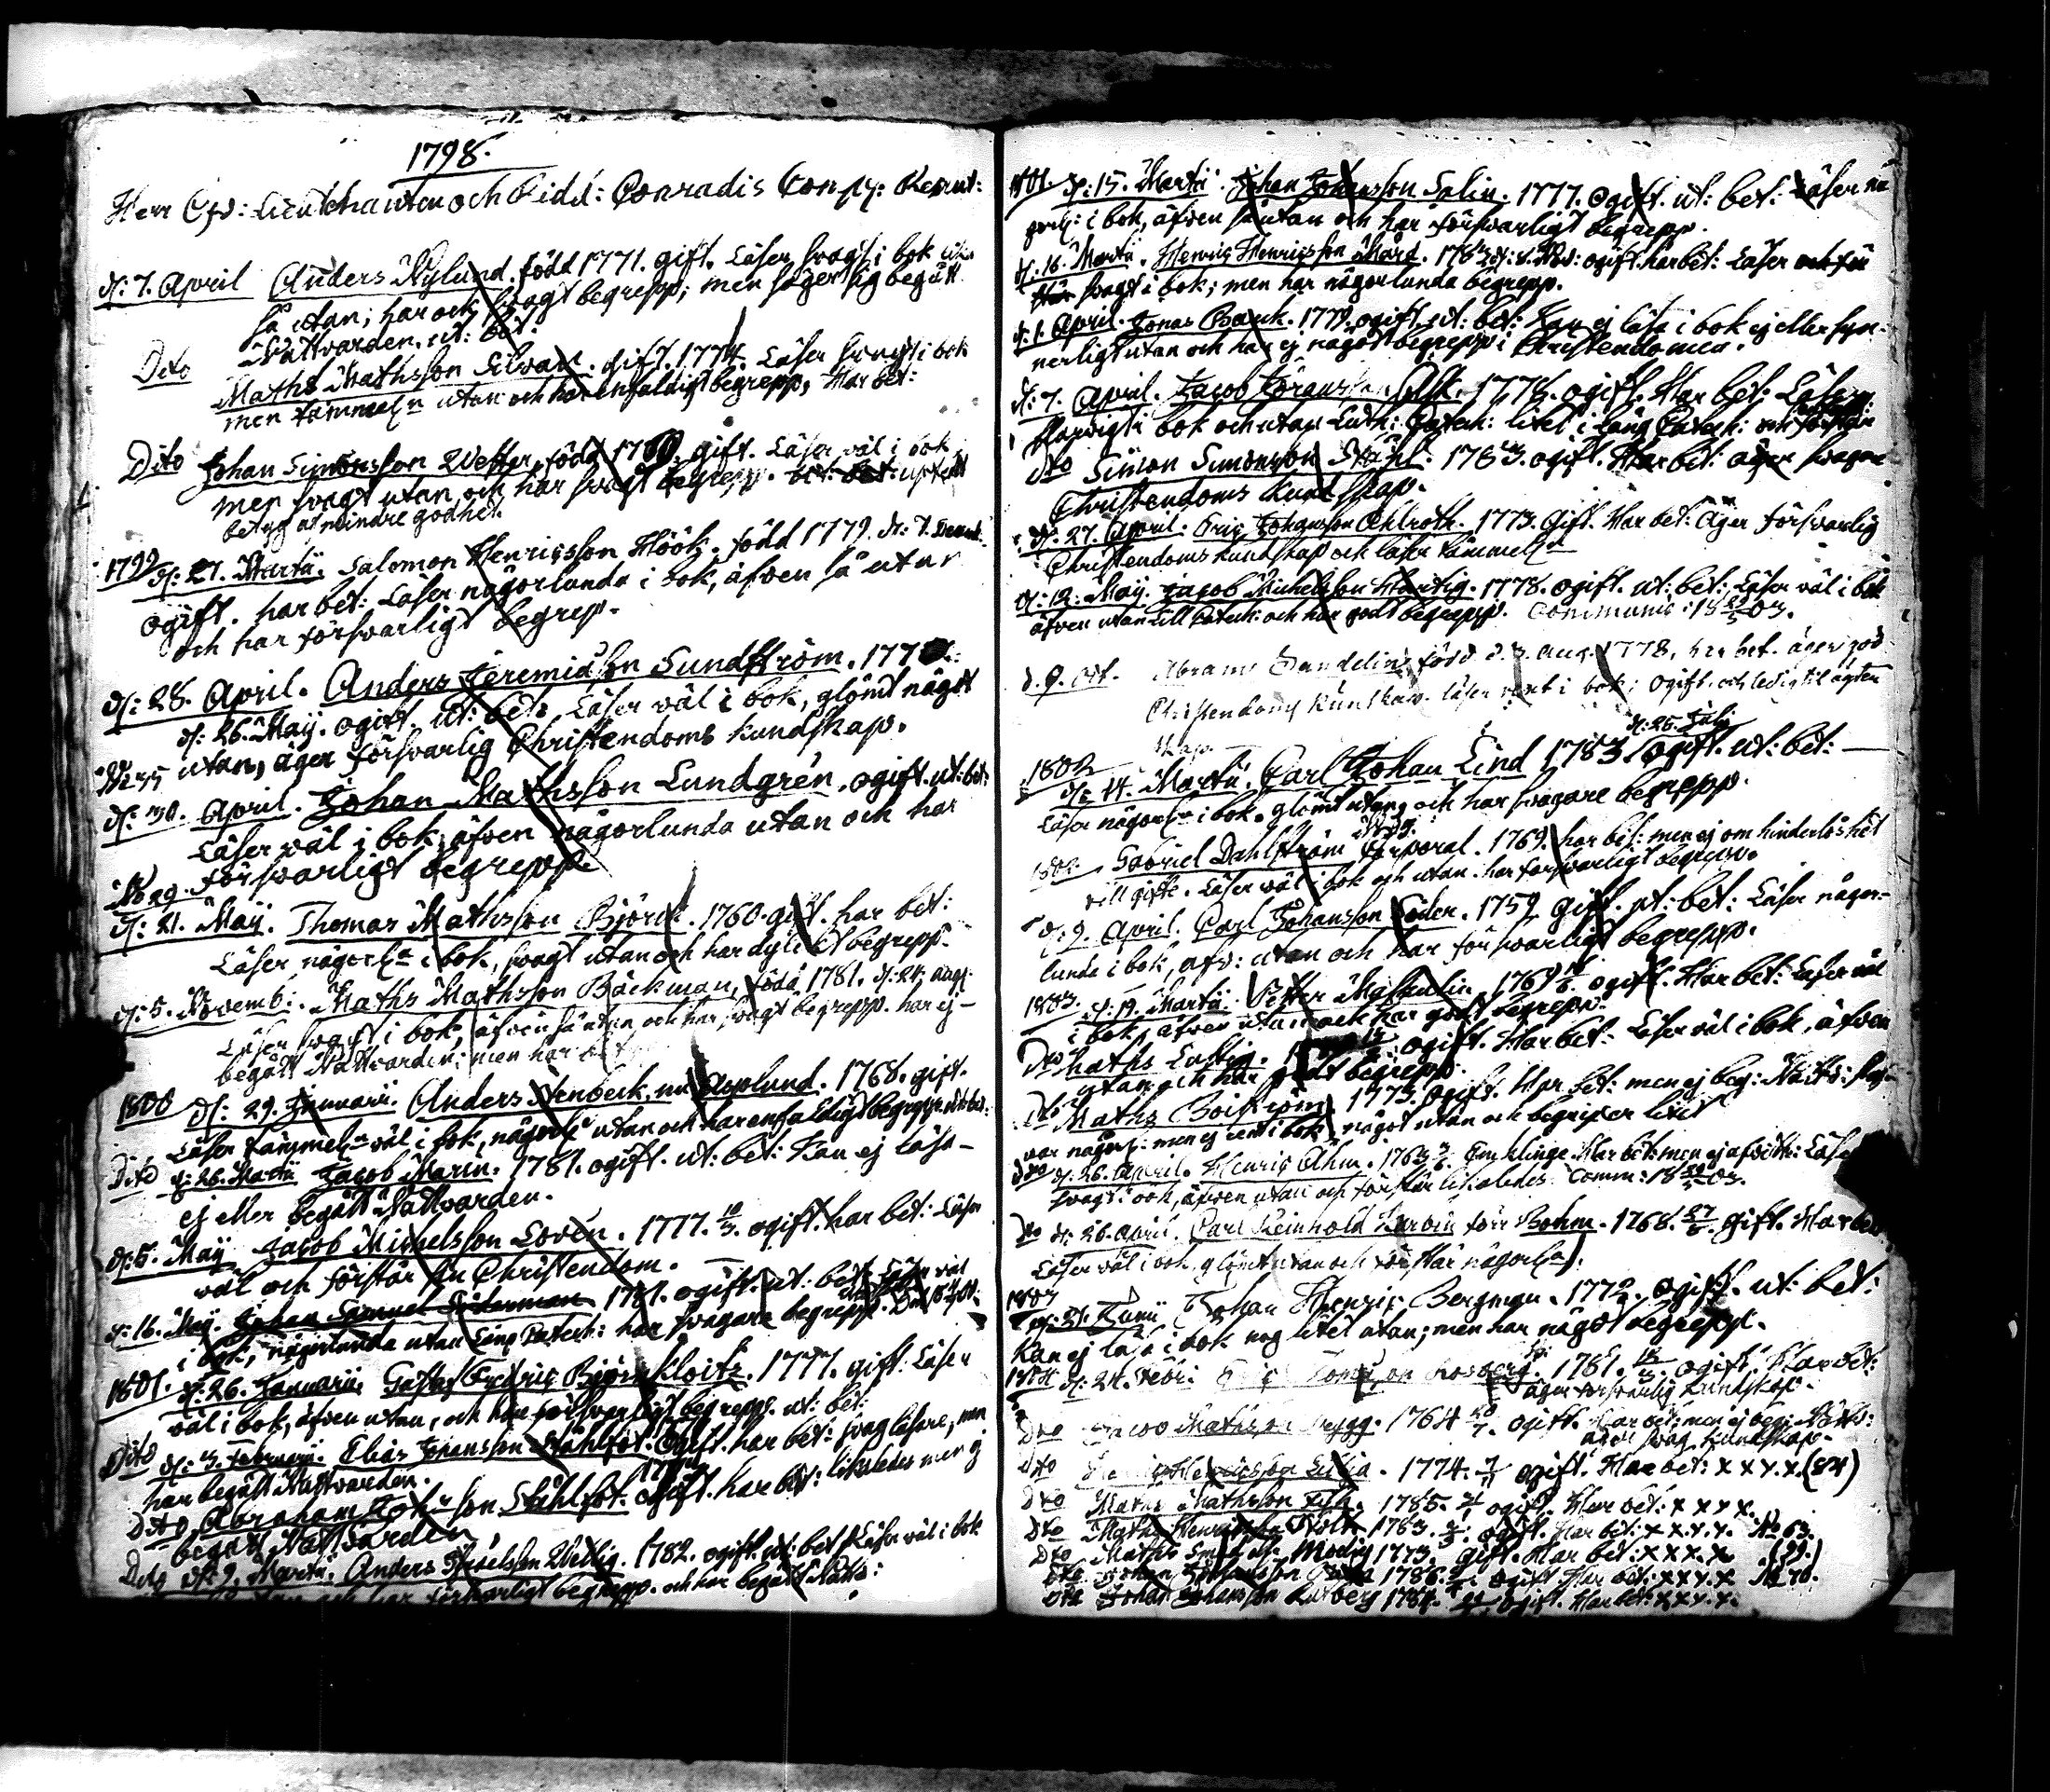 1798.
Herr Öfv: Lieutenanten och Ridd: Conradis Comp: Recrut:
d: 7. April Anders Nylund. född 1771. gift. Läser svagt i bok lika
så utan; har och svagt begrepp; men säger sig begått
Nattvarden. ut: bet:
Dito Maths Mathsson Silvan. gift. 1774. Läser svagt i bok
men tämmeln utan och har enfaldigt begrepp, Har bet:
Dito Johan Simonsson Wetter född 1760. gift. Läser väl i bok
men svagt utan och har svagt begrepp.
betyg af mindre godhet.
1799 d: 27. Martii. Salomon Henricsson Höök. född 1779. d: 7. Decemb:
ogift. har bet: Läser någorlunda i bok, äfven så utan
och har försvarligt begrep.
d: 28. April. Anders Jeremiæson Sundström. 177
d: 26. Maij. ogift. ut: bet: Läser väl i bok, glömt något
utan, äger försvarlig Christendoms kundskap.
d: 30. April. Johan Mathsson Lundgrén. ogift. ut: bet:
Läser väl i bok, äfven någorlunda utan och har
No 29. försvarligt begrepp.
d: 21. Maij. Thomas Mathsson Björck. 1760. gift. har bet:
Läser någorl: i bok, svagt utan och har dylikt begrepp.
d: 5. Novemb: Maths Mathsson Bäckman, född 1781. d: 24. Aug:
Läser svagt i bok, äfven så utan och har svagt begrepp. har ej
begått Nattvarden; men har bet
1800 d: 29. Januarii. Anders Stenbeck, nu Asplund. 1768. gift.
Läser tämmeln väl i bok, någorl: utan och har enfaldigt begrepp. ut: bet:
Dito d: 26. Martii Jacob Marin. 1781. ogift. ut: bet: Kan ej läsa
ej eller begått Nattvarden.
d: 5. Maij Jacob Michelsson Lovén. 1777. 10/3. ogift. har bet: Läser
väl och förstår sin Christendom.
d: 16. Maij. Johan Samuel Söderman 1781. ogift. ut: bet: Läser väl
i bok, någorlunda utan Simp Catech: har svagare begrepp.
1801. d: 26. Januarii. Gustaf Fredric Björnkloitz. 1777. gift. Läser
väl i bok, äfven utan, och har försvarligt begrepp. ut: bet:
Dito d: 3. Februarii. Elias Johansson Stählfot. Ogift. har bet: svag läsare, men
har begått Nattvarden.
Dito Abraham Johansson Stählfot. ogift. har bet: likaledes men ej
begått Nattvarden
Dito d: 9. Martii. Anders Thoelsson Wettig. 1782. ogift. ut: bet: Läser väl i bok
utan och har försvarligt begrepp. och har begått Nattv:
1801. d: 15. Martii. Johan Johansson Salin. 1777. ogift. ut: bet: Läser nå
gorl: i bok, äfven så utan och har försvarligt begrepp.
d: 16. Martii. Henric Henricsson Mård. ogift. har bet: Läser
svagt i bok; men har någorlunda begrepp.
d: 1. April. Jonas Banck. 1779. ogift. ut: bet: Kan ej läsa i bok ej eller syn-
nerligt utan och har ej något begrepp i Christendomen.
d: 7. April. Jacob Göransson Ask. 1778. ogift. Har bet: Läser
i bok och utan Luth: Catech: litet i lång Catech: och förstår
Dto Simon Simonsson Stähl. 1783. ogift. Har bet: äger svagare
Christendoms kundskap.
d: 27. April. Eric Johansson Ahlroth. 1773. Gift. Har bet: Äger försvarlig
Christendoms kundskap och läser tämmeln
d: 12. Maij. Jacob Michelsson Hurtig. 1778. ogift. ut: bet: Läser väl i bok
äfven utan till Catech: och har godt begrepp. Communic: 18 03.
d. 9. Oct. Abram Sandelin född d. 3. Aug. 1778. har bet. äger god
Christendoms kunskap. läser rent i bok; ogift. och ledig til ägten
skap.
1802 d: 14. Martii. Carl Johan Lind 1783. d: 25. Julij ogift. ut: bet:
Läser någorln i bok, glömt utan, och har svagare begrepp.
1802. Gabriel Dahlström Corporal. 1769. har bet: men ej om hinderlöshet
till gifte. Läser väl i bok och utan. har försvarligt begrepp.
d: 9. April. Carl Johansson Söder. 1759. gift. ut: bet: Läser någor-
lunda i bok, äfv: utan och har försvarligt begrepp.
1803. d: 19. Martii. Petter Malmlin. 1769. ogift. Har bet: Läser väl
i bok, äfven utan och har godt begrepp.
Dto Maths Lustig. ogift. Har bet: Läser väl i bok, äfven
utan och har godt begrepp.
Dto Maths Boiström. 1773. ogift. Har bet: men ej beg: Nattv:
var någorl: men ej rent i bok, något utan och begriper litet
Dto d: 26. April. Henric Åhm. 1763. Har bet: men ej af : Läser
svagt i bok, äfven utan och förstår likaledes. Comm: 18 03.
Dto d: 26. April. Carl Reinhold förr Bohm. 1768. 27/6. gift. Har bet:
Läser väl i bok, glömt utan och förstår någorln
d: 21. Junii Johan Henric Bergman. 1772. ogift. ut: bet:
Kan ej läsa i bok nog litet utan; men har något begrepp.
d: 24. Febr: Rosberg. 1781. ogift. Har bet:
äger försvarlig kundskap.
Dto Jacob Mathsson Snygg. 1764 ogift. Har bet: men ej beg: Nattv:
äger svag kundskap.
Dto Henric Henricsson Lilja. 1774. ogift. Har bet: x x y. x. (84)
Dto Maths Mathsson Fisk. 1785. ogift. Har bet: x x y x.
Dto Maths Henricsson Stolt 1783. ogift. Har bet: x x. y. y. No 63.
Dto Maths Modig 1773. gift. Har bet: x x x. x (39.)
Dto Johan Johansson 1786. ogift Har bet: x x y. x No 70.
Dto Johan Johansson Rutberg 1784. ogift. Har bet: x x y. x.